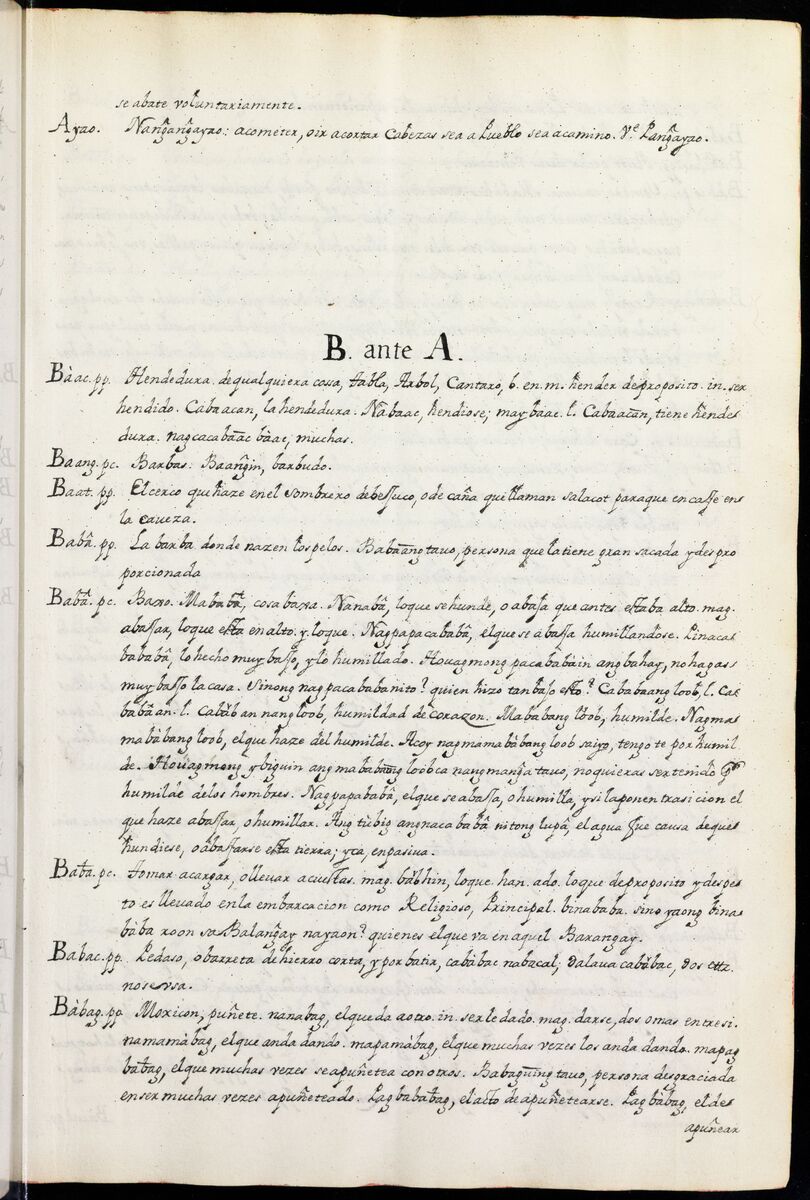 se abate voluntariamente.
Ayao. Nang̃ang̃ayao: acometer, oir acortar Cabezas sea a Pueblo sea acamino. Vᵉ Pang̃ayao.
B. ante A.
Bàac. pp. Hendedura. de qualquiera cosa, tabla, Arbol, Cantaro, b. en. m. hender de proposito. in. ser
hendido. Cabaacan, la hendedura. Nabaac, hendiose; may baac. l. Cabaacan, tiene hendes
dura. nagcacabaac bàac, muchas.
Baang. pc. Barbas. Baang̃in, barbudo.
Baat. pp. El cerco que haze en el sombrero debessuco, o de caña que llaman salacot paraque encasse ens
la caveza.
Babâ. pp. La barba donde nazen los pelos. Babaang tavo, persona que la tiene gran sacada y despro
porcionada
Babâ. pc. Baxo. Mababâ, cosa baxa. Nanabâ, loque se hunde, o abasa que antes estaba alto. mag.
abassar, loque esta en alto. y. loque. Nagpapacababâ, el que se abassa humillandose. Pinacas
bababâ, lo hecho muy basso, y lo humillado. Houagmong pacababàin ang bahay, no hagas
muy basso la casa. Sinong nagpacababanito? quien hizo tan baso esto? Cababaang loob, l. Cas
babâan. l. Cabâban nang loob, humildad de corazon. Mababang loob, humilde. Nagmas
mabàbang loob, el que haze del humilde. Acoy nagmamabàbang loob saiyo, tengo te por humil
de. Houagmong ybiguin ang mababang loob ca nang mang̃a tavo, no quieras ser tenido por
humilde de los hombres. Nagpapababâ, el que se abassa, o humilla, y si la ponen trasicion el
que haze abassar, o humillar. Ang tùbig ang nacababâ nitong lupâ, el agua fue causa de ques
hundiese, o abassarse esta tierra; yca, en pasiva.
Baba. pc. Tomar acargar, o llevar acuestas. mag. bàbhin, loque. han. ado. loque de proposito y despes
to es llevado en la embarcacion como Religioso, Principal. binababa. sino yaong binas
bàba roon sa Balang̃ay nayaon? quienes el que va en aquel Barangay.
Babac. pp. Pedaso, o barreta de hierro corta, y por batir, cabàbac nabacal, dalaua cabàbac, dos etz.
nose vsa.
Bàbag. pp. Moxicon, puñete. nanabag, el que da aotro. in. serle dado. mag. darse, dos o mas entresi.
namamàbag, el que anda dando. mapamàbag, el que muchas vezes los anda dando. mapag
babag, el que muchas vezes se apuñetea con otros. Babaguing tavo, persona desgraciada
en ser muchas vezes apuñeteado. Pagbababag, el acto de apuñetearse. Pagbàbag, el des
apuñear